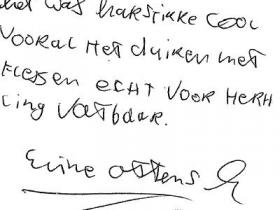 het was hartstikke cool
vooral het duiken met
flessen echt voor herh
ling vatbaar.
Eline Ottens